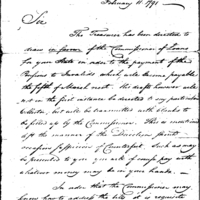 February 11. 1791
Sir
The Treasurer has been directed to
draw in favor of the Commissioner of Loans
for your State in order to the payment of the
Pensions to Invalids which will become payable
the fifth of March next. The drafts however will
not in the first instance be directed to any particular
Collector, but will be transmitted with blanks to
be filled up by the Commissioner. This is mentioned
that the manner of the Direction
occasion suspicion of Counterfeit. Such as may
be presented to you you will comply with
whatever money may be in your hands.
In order that the Commissioner may
know how to address the bills it is requisite